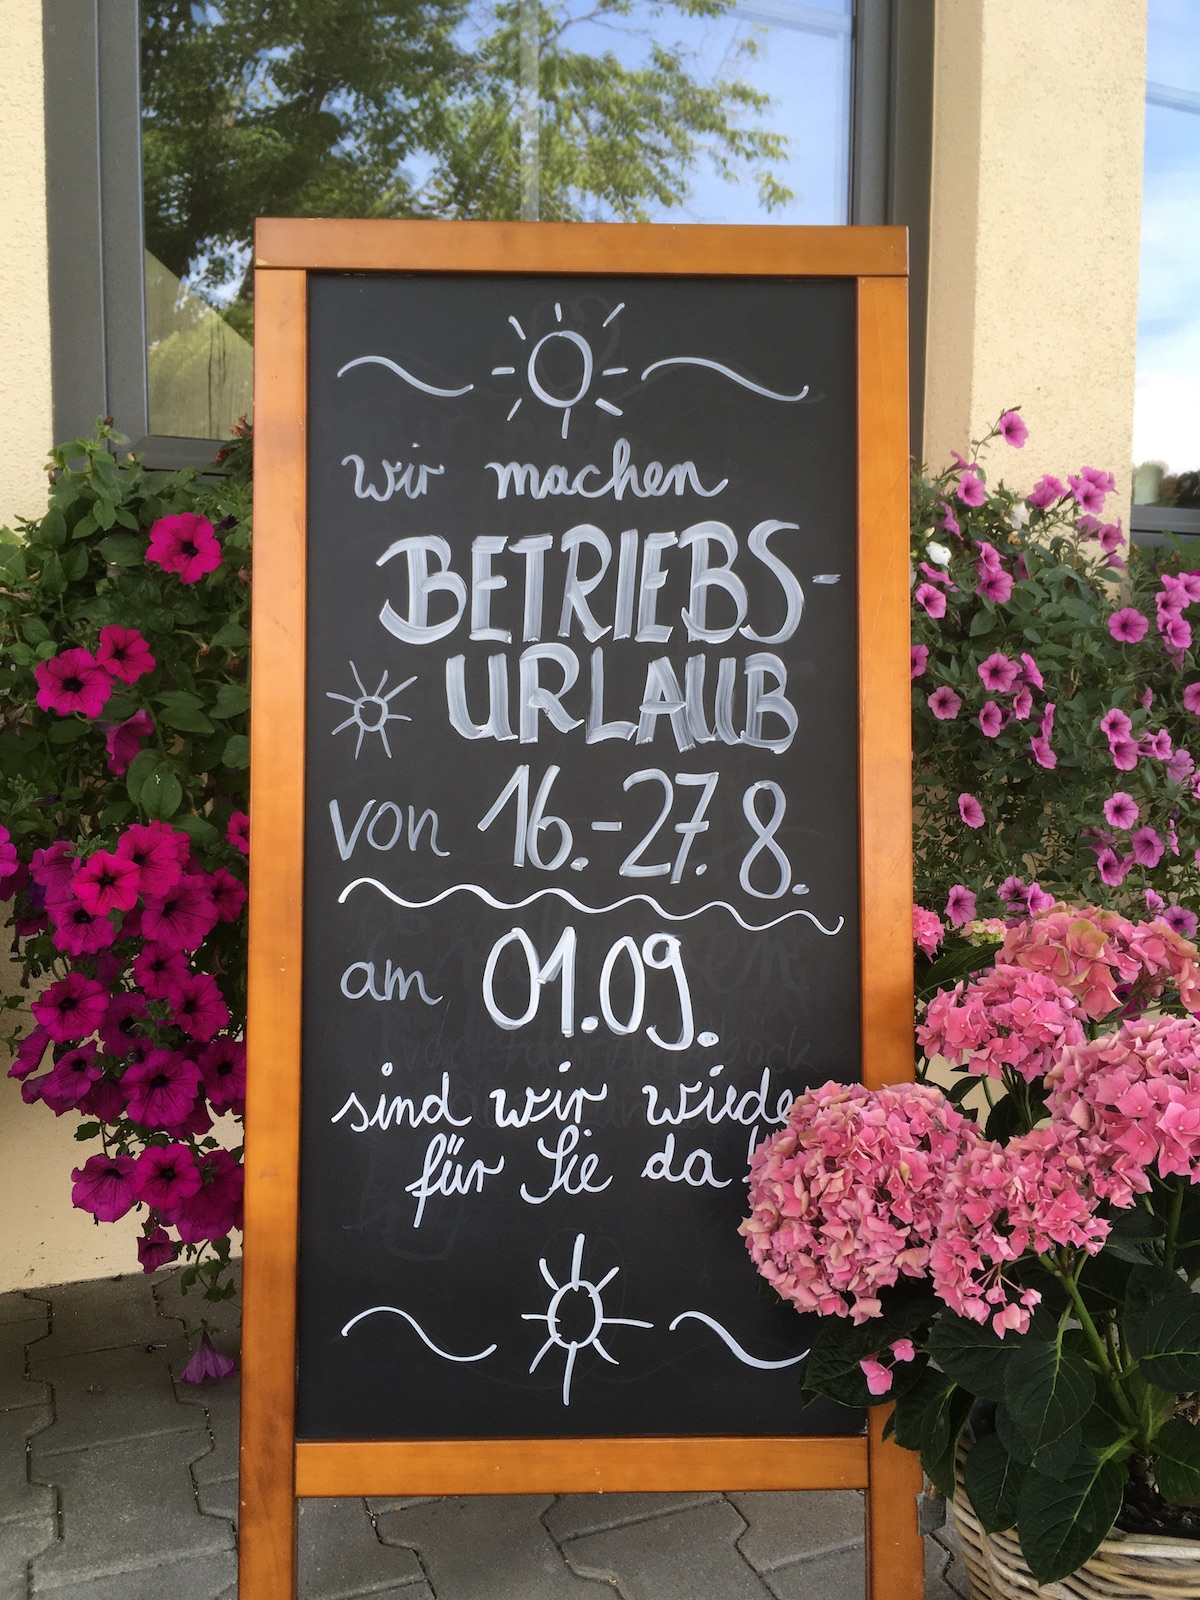 wir machen
BETRIEBS-
URLAUB
von 16.-27. 8.
am 01.09.
sind wir wieder
für Sie da!